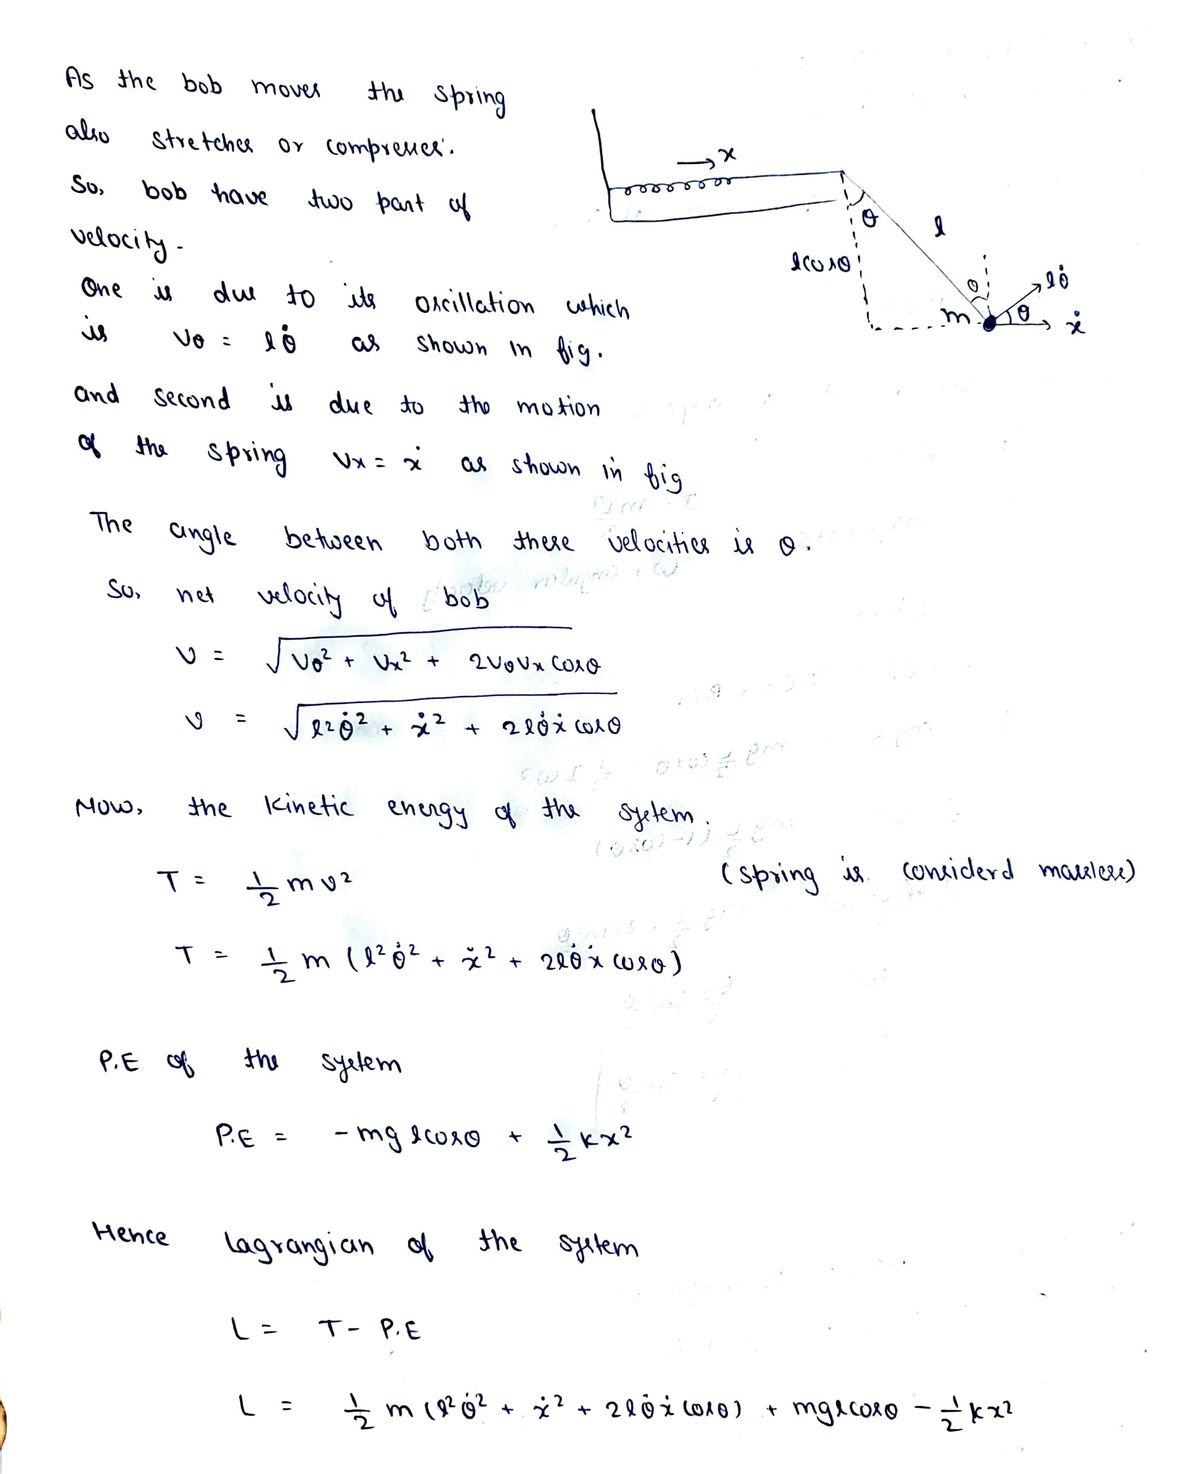 As the bob moves the spring
also stretches or compresses.
So, bob have two part of
velocity.
One is due to its oscillation which
is Vθ = lθ̇ as shown in fig.
and second is due to the motion
of the spring Vx = ẋ as shown in fig
x
θ
l
lcosθ
θ
lθ̇
m
θ
ẋ
The angle between both these velocities is θ.
So, net velocity of bob
V = √(Vθ² + Vx² + 2VθVx cosθ)
v = √(l²θ̇² + ẋ² + 2lθ̇ẋ cosθ)
Now, the kinetic energy of the system.
T = 1/2 mv² (spring is considerd massless)
T = 1/2 m (l²θ̇² + ẋ² + 2lθ̇ẋ cosθ)
P.E of the system
P.E = - mg lcosθ + 1/2 kx²
Hence lagrangian of the system
L = T - P.E
L = 1/2 m (l²θ̇² + ẋ² + 2lθ̇ẋ cosθ) + mglcosθ - 1/2 kx²